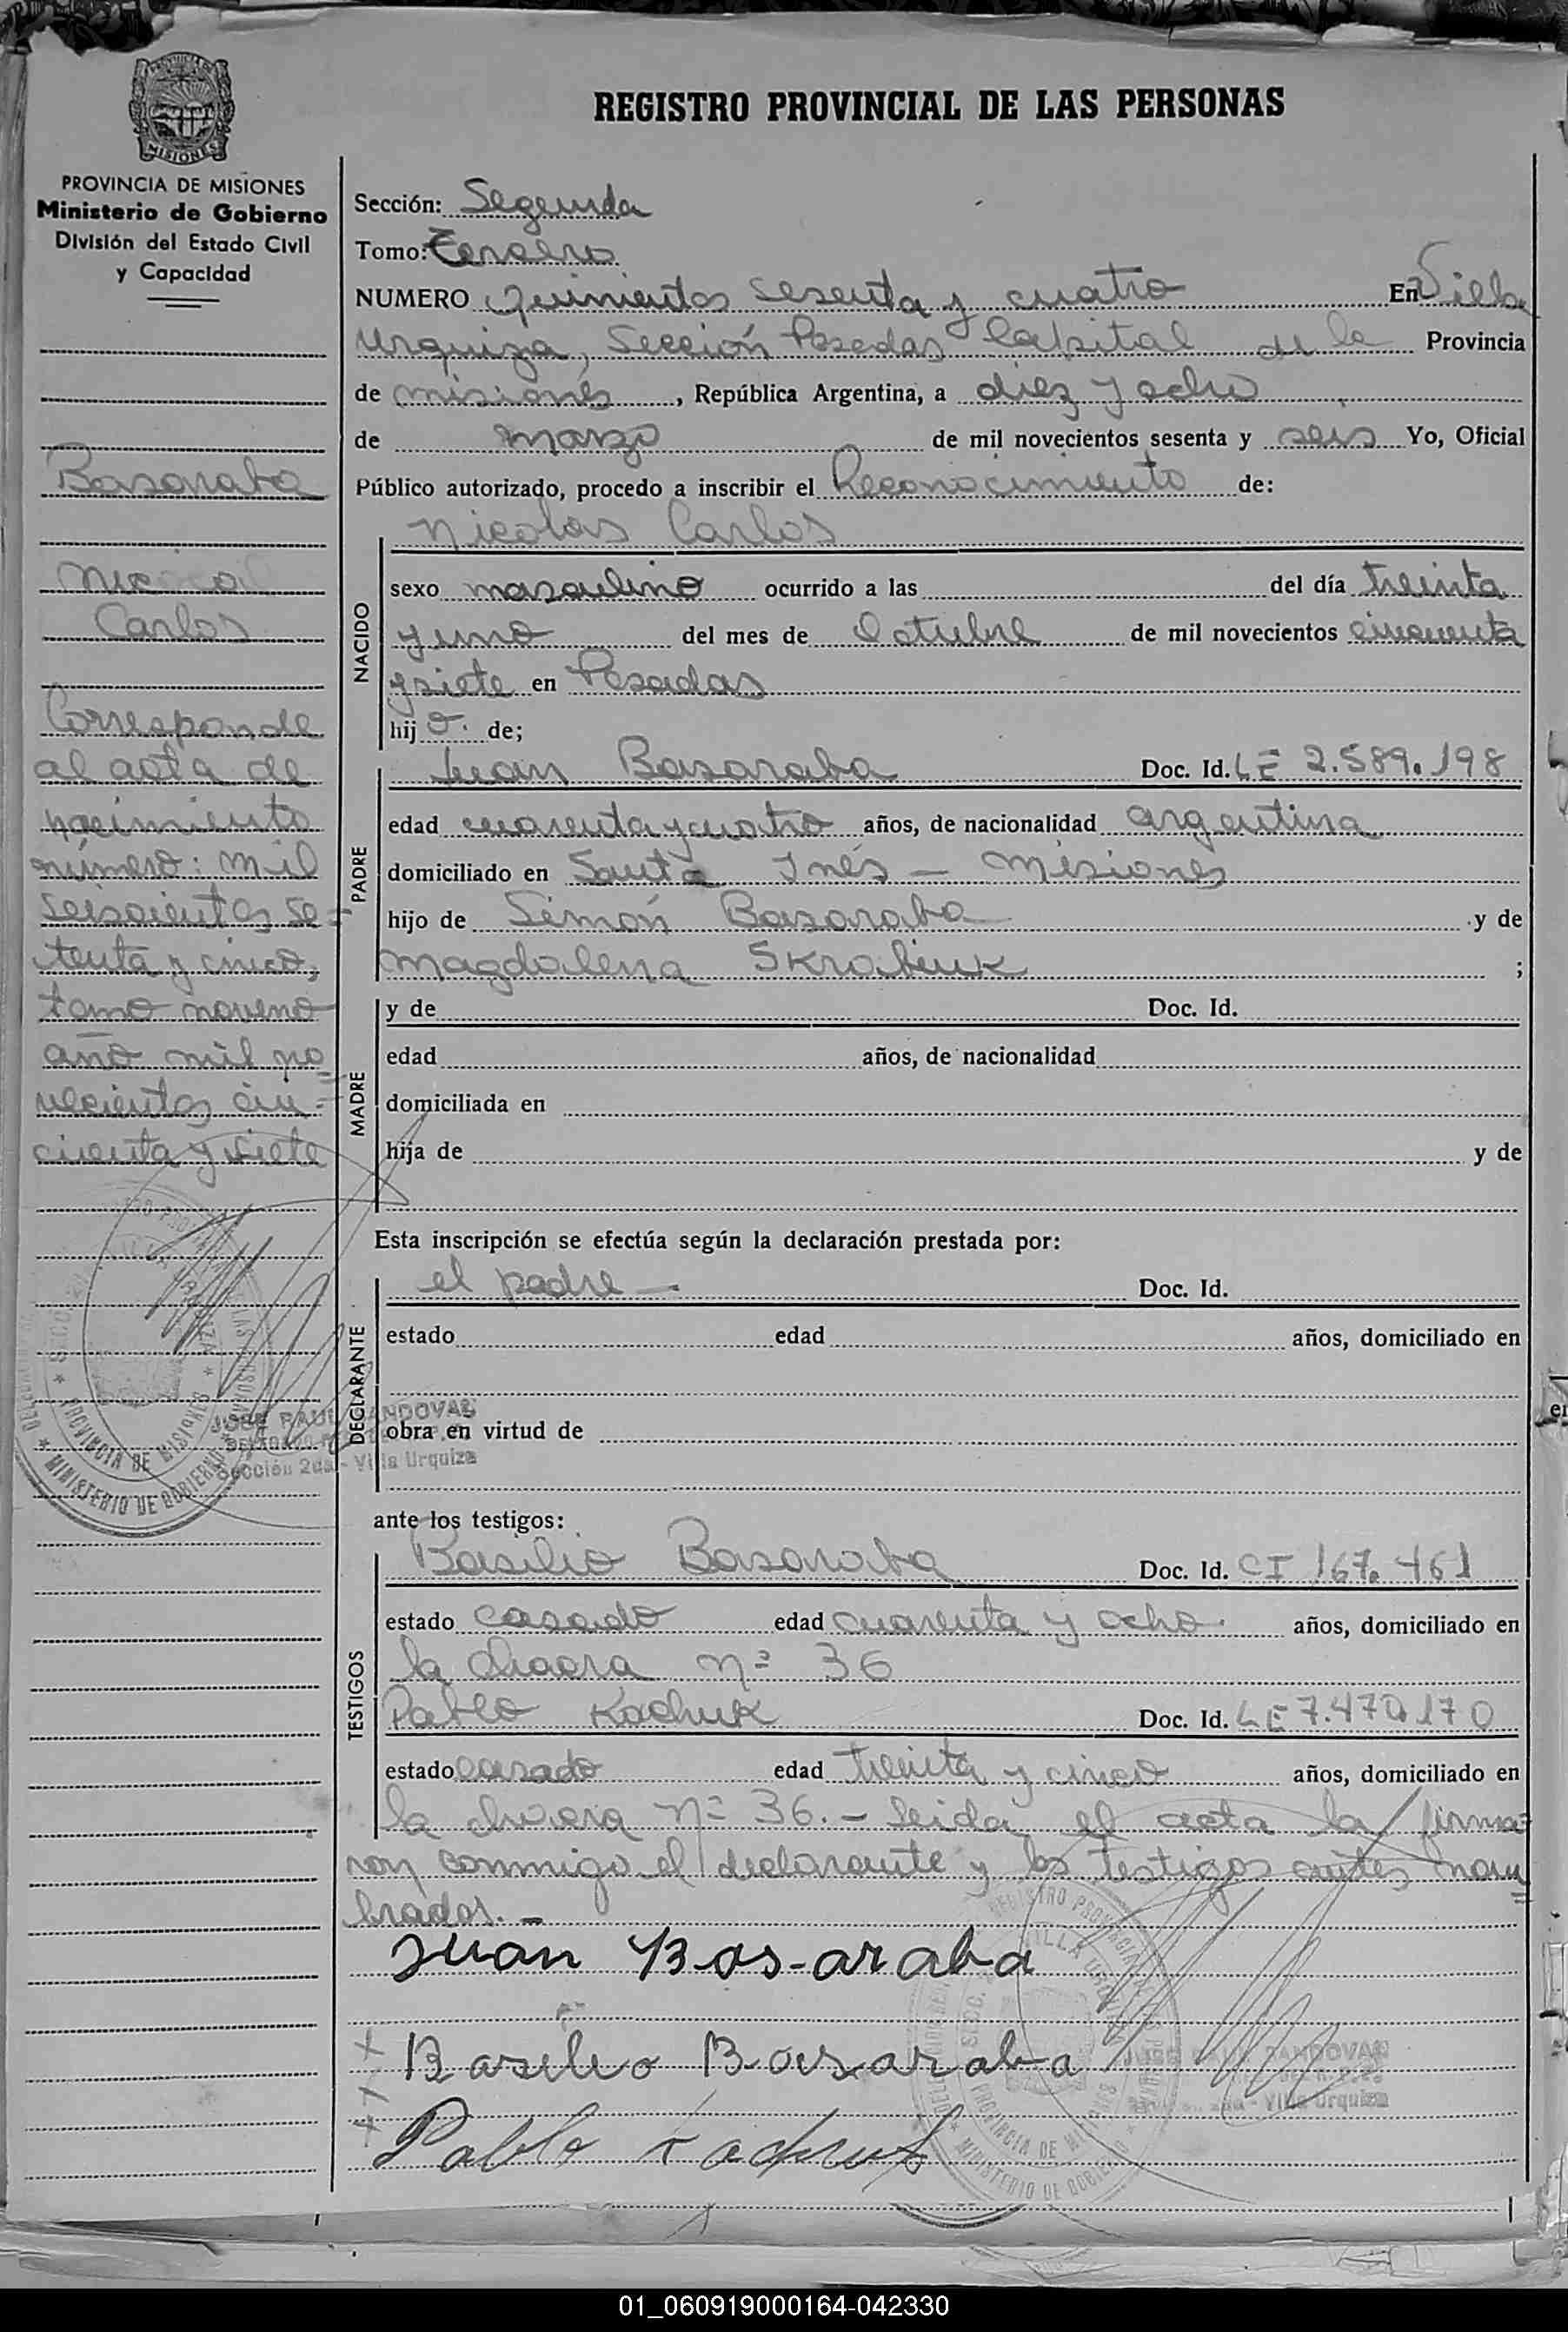 MISIONES
PROVINCIA DE MISIONES
Ministerio de Gobierno
División del Estado Civil
y Capacidad
Basaraba
Carlos
Corresponde
al acta de
nacimiento
número: mil
seiscientos se=
tenta y cinco,
tomo noveno
año mil no
vecientos cin=
cuenta y siete
REGISTRO PROVINCIAL DE LAS PERSONAS
Sección: Segunda
Tomo: Tercero
NUMERO Quinientos sesenta y cuatro En Villa
Urquiza, Sección Posadas Capital de la Provincia
de misiones, República Argentina, a diez y ocho
de marzo de mil novecientos sesenta y seis Yo, Oficial
Público autorizado, procedo a inscribir el Reconocimiento de:
Nicolas Carlos
NACIDO
sexo masculino ocurrido a las del día treinta
y uno del mes de Octubre de mil novecientos cincuenta
y siete en Posadas
hij o. de;
PADRE
Juan Basaraba Doc. Id. LE 2.589.198
edad cuarenta y cuatro años, de nacionalidad argentina
domiciliado en Santa Inés - Misiones
hijo de Simón Basaraba y de
Magdalena Skrabiuk ;
MADRE
y de Doc. Id.
edad años, de nacionalidad
domiciliada en
hija de y de
Esta inscripción se efectúa según la declaración prestada por:
DECLARANTE
el padre - Doc. Id.
estado edad años, domiciliado en
obra en virtud de
JOSE RAUL SANDOVAL
Sección 2da - Villa Urquiza
PROVINCIA DE MISIONES
MINISTERIO DE GOBIERNO
ante los testigos:
TESTIGOS
Basilio Basaraba Doc. Id. CI 167.461
estado casado edad cuarenta y ocho años, domiciliado en
la chacra nº 36
Pablo Kachuk Doc. Id. LE 7.470.170
estado casado edad treinta y cinco años, domiciliado en
la chacra nº 36. - Leida el acta la firma=
ron conmigo el declarante y los testigos antes nom=
brados. -
Juan Bas-araba
Basilio Basaraba
Pablo Kachuk
01_060919000164-042330